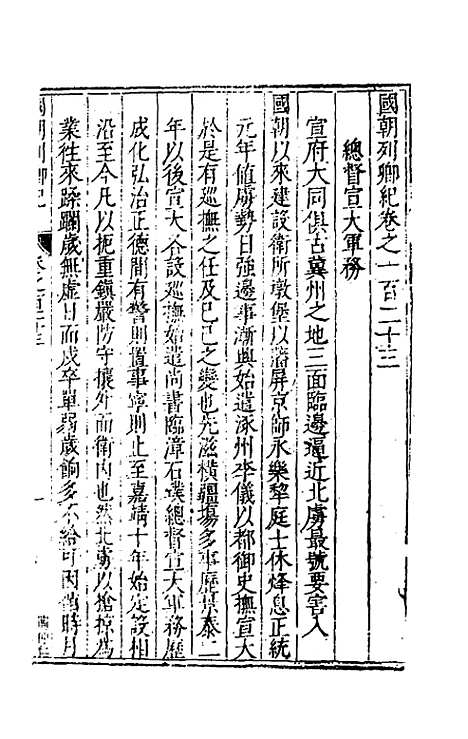 國朝列卿紀卷之一百二十三
總督宣大軍務
宣府大同俱古冀州之地三面臨邊逼近北虜最號要害入
國朝以來建設衛所墩堡以藩屏京師永樂犂庭士休烽息正統
元年值虜勢日強邊事漸興始遣涿州李儀以都御史撫宣大
於是有巡撫之任及己巳之變也先滋橫疆場多事歷景泰二
年以後宣大各設巡撫始遣尚書臨漳石璞總督宣大軍務歷
成化弘治正德間有警則置事寧則止至嘉靖十年始定設相
沿至今凡以扼重鎮嚴防守攘外而衛內也然北虜以搶掠為
業往來蹂躪歲無虛日而戍卒單弱歲餉多不給可因循時月
國朝列卿紀 卷之一百二十三 一